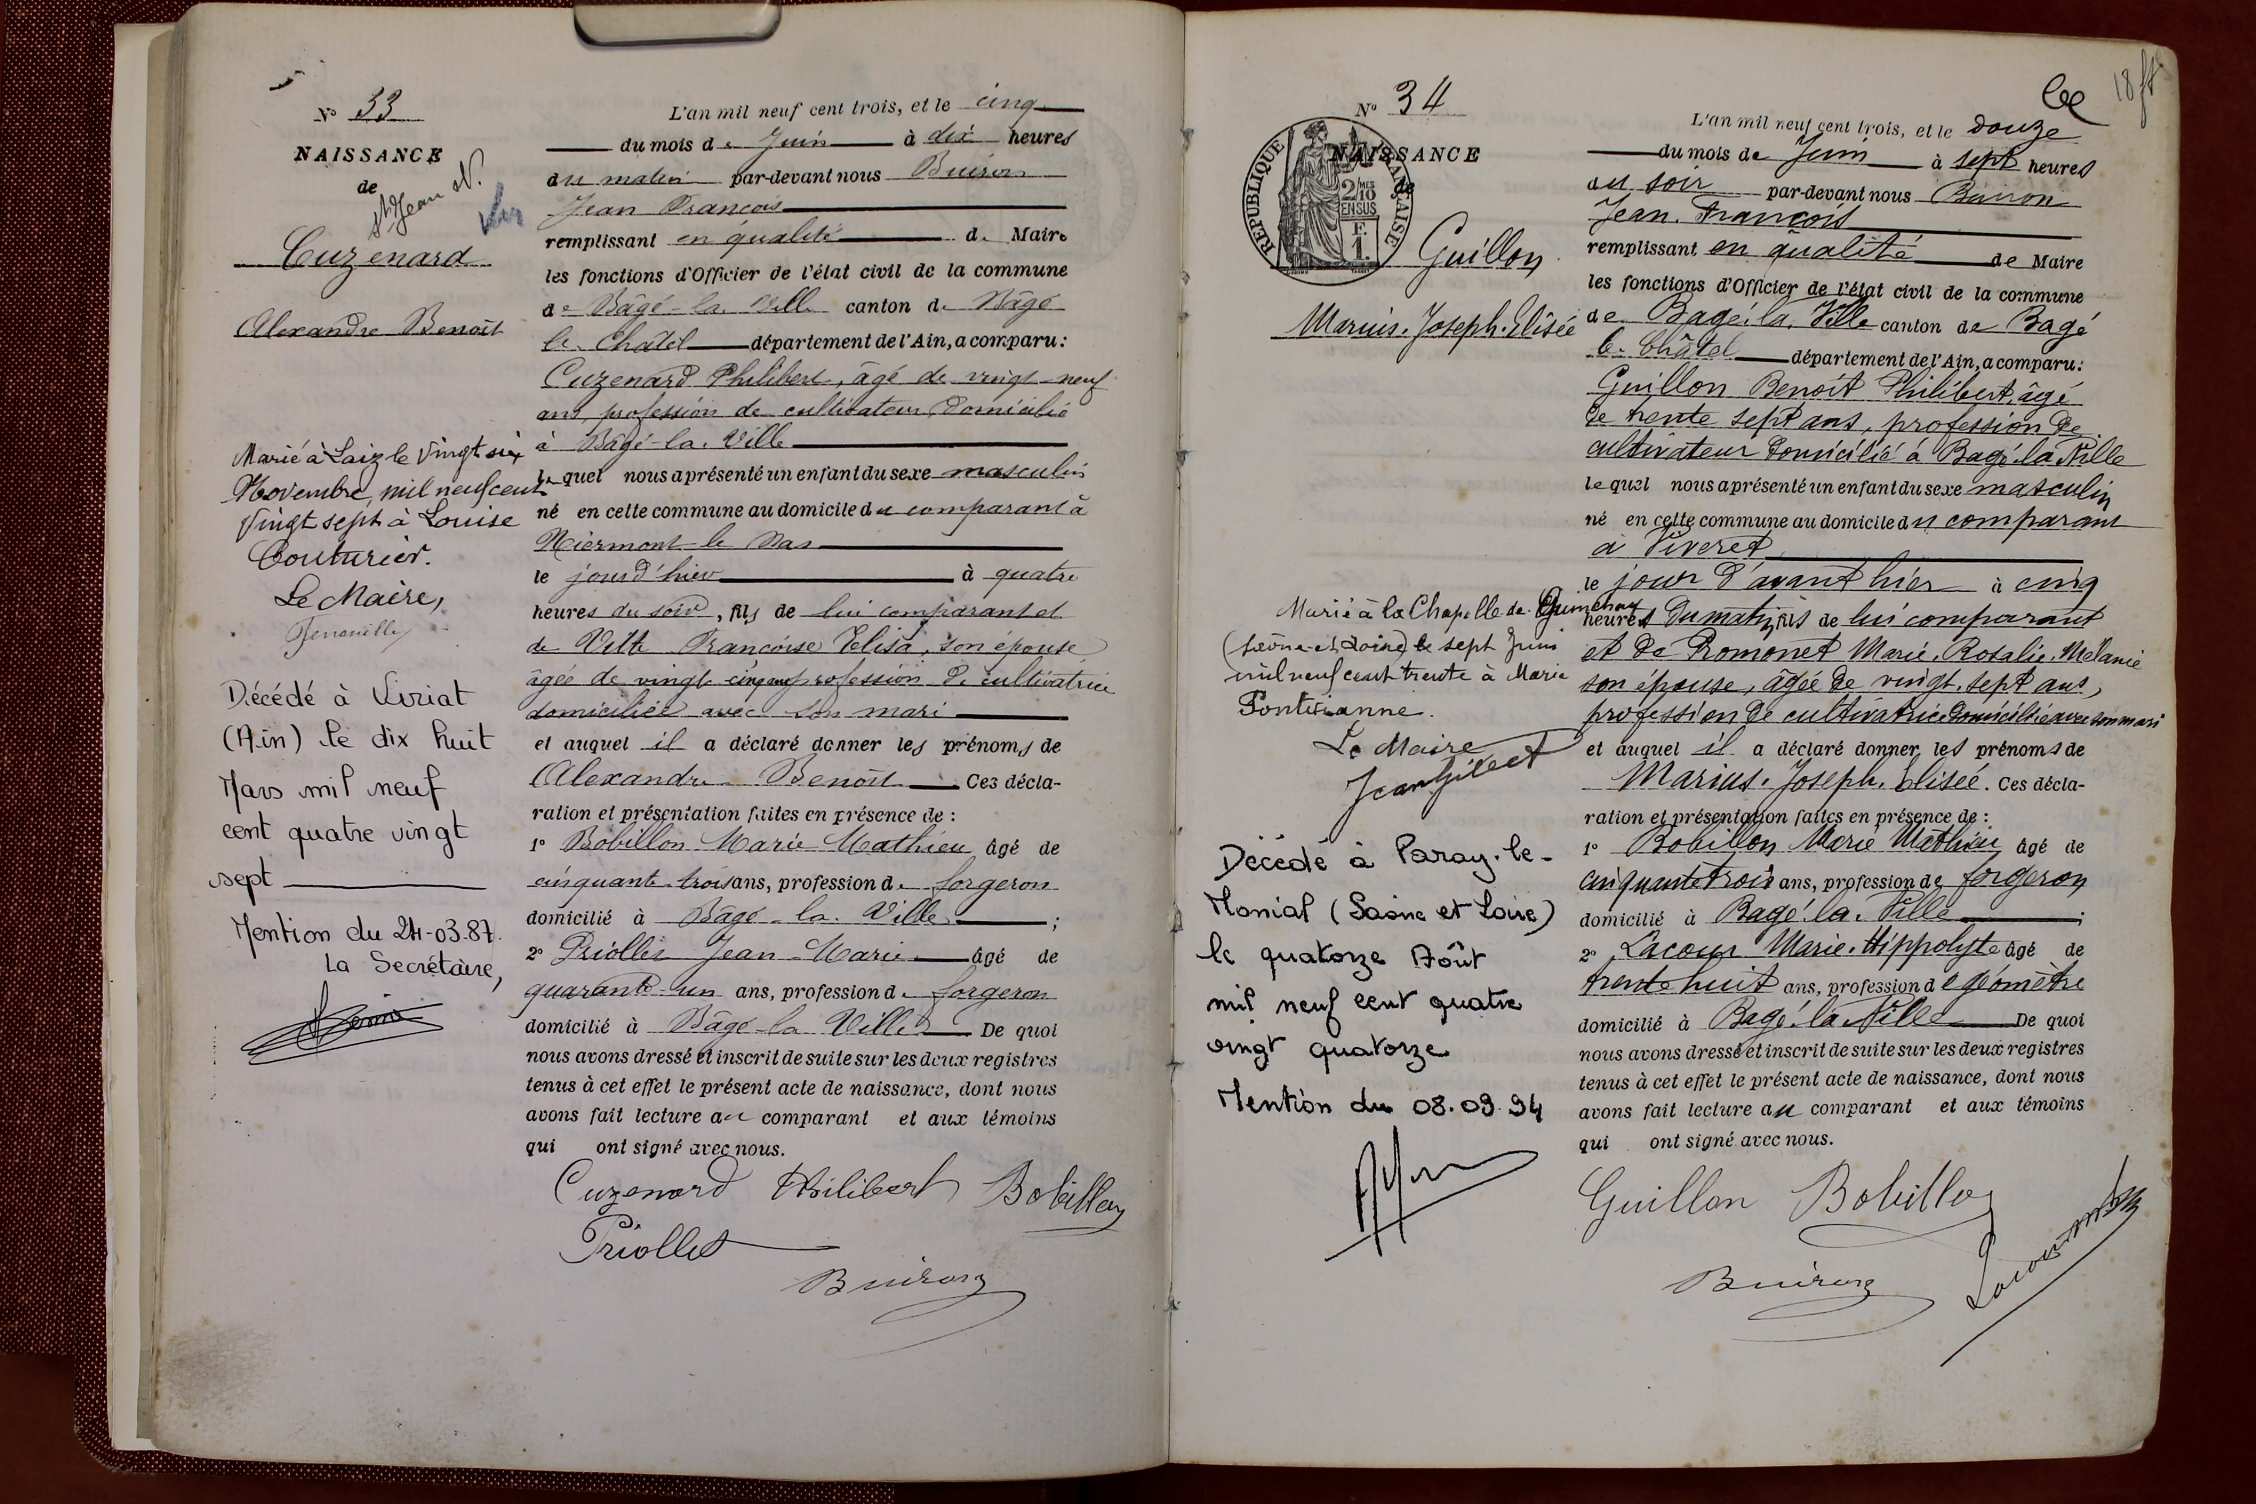 N° 33
NAISSANCE
de
St Jean
Cuzenard
Alexandre Benoît
Marié à Laiz le vingt six
Novembre, mil neuf cent
vingt sept à Louise
Couturier.
Le Maire,
Décédé à Viriat
(Ain) le dix huit
Mars mil neuf
cent quatre vingt
sept
Mention du 24-03-87.
La Secrétaire,
L'an mil neuf cent trois, et le cinq
du mois de Juin à dix heures
du matin par-devant nous Buiron
Jean François
remplissant en qualité de Maire
les fonctions d'Officier de l'état civil de la commune
de Bâgé-la-Ville canton de Bâgé
le Chatel département de l'Ain, a comparu :
Cuzenard Philibert, âgé de vingt-neuf
ans profession de cultivateur domicilié
à Bâgé-la-Ville
lequel nous a présenté un enfant du sexe masculin
né en cette commune au domicile du comparant à
le jour d'hier à quatre
heures du soir, fils de lui comparant et
de Velle Françoise Elisa, son épouse
âgée de vingt cinq ans profession de cultivatrice
domiciliée avec son mari
et auquel il a déclaré donner les prénoms de
Alexandre Benoît Ces décla-
ration et présentation faites en présence de :
1° Bobillon Marie Mathieu âgé de
cinquante trois ans, profession de forgeron
domicilié à Bâgé-la-Ville ;
2° Priollet Jean-Marie âgé de
quarante-un ans, profession de forgeron
domicilié à Bâgé-la-Ville De quoi
nous avons dressé et inscrit de suite sur les deux registres
tenus à cet effet le présent acte de naissance, dont nous
avons fait lecture au comparant et aux témoins
qui ont signé avec nous.
Cuzenard Philibert Bobillon
Priollet
Buiron
18
N° 34
NAISSANCE
de
REPUBLIQUE FRANÇAISE
2/10 MES
EN SUS
F.
1.
Guillon
Marius. Joseph. Elisée
Marié à la Chapelle de Guinchay
(Saône-et-Loire) le sept Juin
mil neuf cent trente à Marie
Le Maire
Décédé à Paray-le-
Monial (Saône et Loire)
le quatorze Août
mil neuf cent quatre
vingt quatorze
Mention du 08.09.94
L'an mil neuf cent trois, et le douze
du mois de Juin à sept heures
du soir par-devant nous Buiron
Jean. François
remplissant en qualité de Maire
les fonctions d'Officier de l'état civil de la commune
de Bagé. la. Ville canton de Bagé
le. Châtel département de l'Ain, a comparu :
Guillon Benoît Philibert, âgé
de trente sept ans, profession de
cultivateur domicilié à Bagé. la Ville
lequel nous a présenté un enfant du sexe masculin
né en cette commune au domicile du comparant
à Viveret
le jour d'avant hier à cinq
heures du matin, fils de lui comparant
et de Promonet Marie. Rosalie. Mélanie
son épouse, âgée de vingt. sept ans,
profession de cultivatrice domiciliée avec son mari
et auquel il a déclaré donner les prénoms de
Marius. Joseph. Elisée. Ces décla-
ration et présentation faites en présence de :
1° Bobillon Marie Mathieu âgé de
cinquante trois ans, profession de forgeron
domicilié à Bagé. la. Ville ;
2° Lacour Marie. Hippolyte âgé de
trente huit ans, profession de géomètre
domicilié à Bagé. la Ville De quoi
nous avons dressé et inscrit de suite sur les deux registres
tenus à cet effet le présent acte de naissance, dont nous
avons fait lecture au comparant et aux témoins
qui ont signé avec nous.
Guillon Bobillon
Buiron